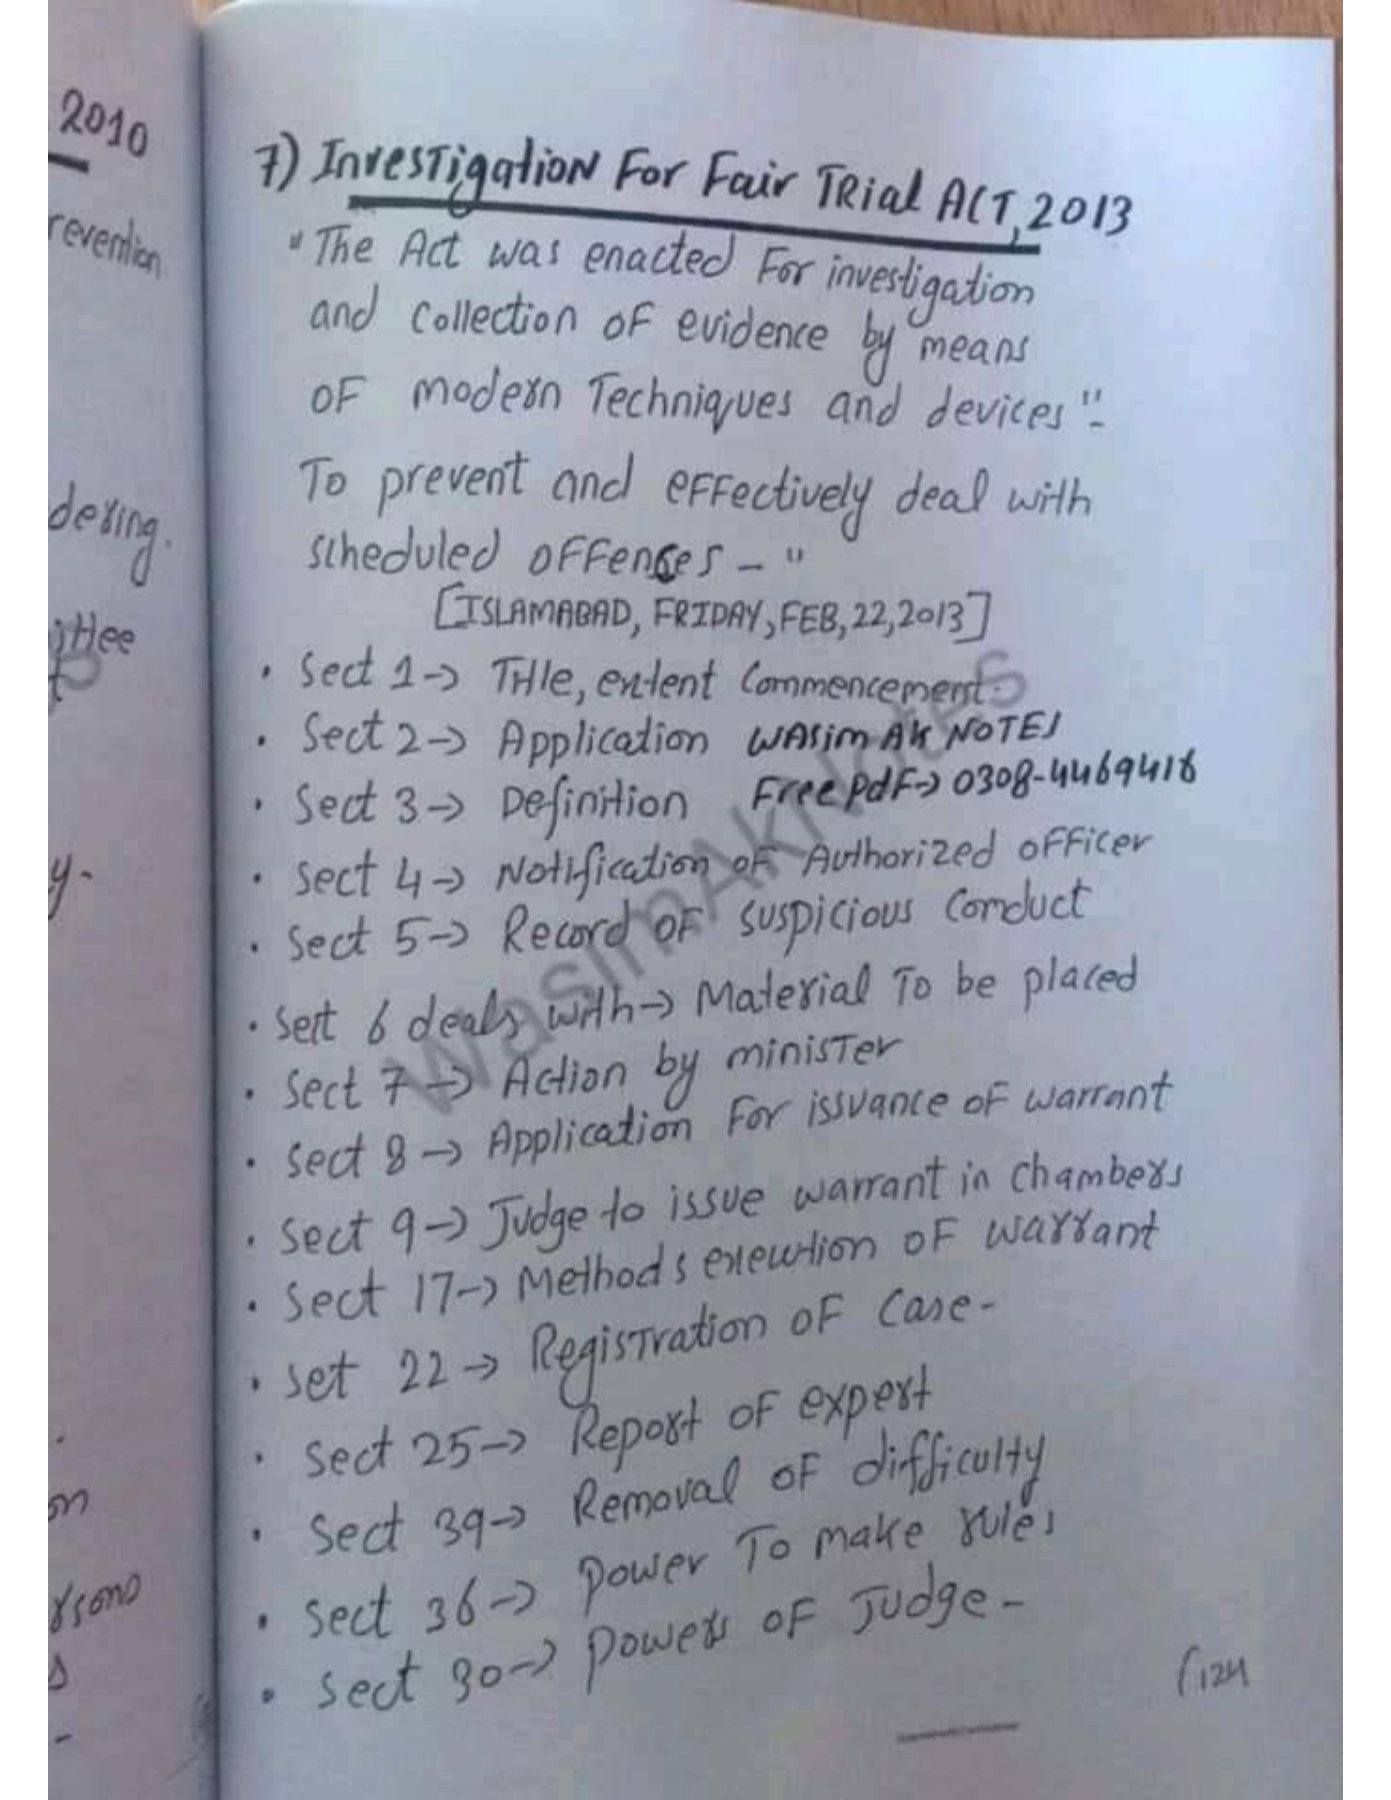 2010
revention
dering.
y-
on
rsons
7) Investigation For Fair Trial Act, 2013
"The Act was enacted For investigation
and collection of evidence by means
of modern Techniques and devices"-
To prevent and effectively deal with
scheduled offences - "
[ISLAMABAD, FRIDAY, FEB, 22, 2013]
• Sect 1→ Title, extent Commencement.
• Sect 2→ Application WASim AK NOTES
• Sect 3→ Definition Free Pdf→ 0308-4469416
• Sect 4→ Notification of Authorized officer
• Sect 5→ Record of suspicious Conduct
• Sect 6 deals with→ Material To be placed
• Sect 7→ Action by minister
• Sect 8→ Application For issuance of warrant
• Sect 9→ Judge to issue warrant in chambers
• Sect 17→ Methods execution of warrant
• Set 22→ Registration of Case-
• Sect 25→ Report of expert
• Sect 39→ Removal of difficulty
• Sect 36→ power To make rules
• Sect 30→ powers of Judge-
124
WasimAkNotes